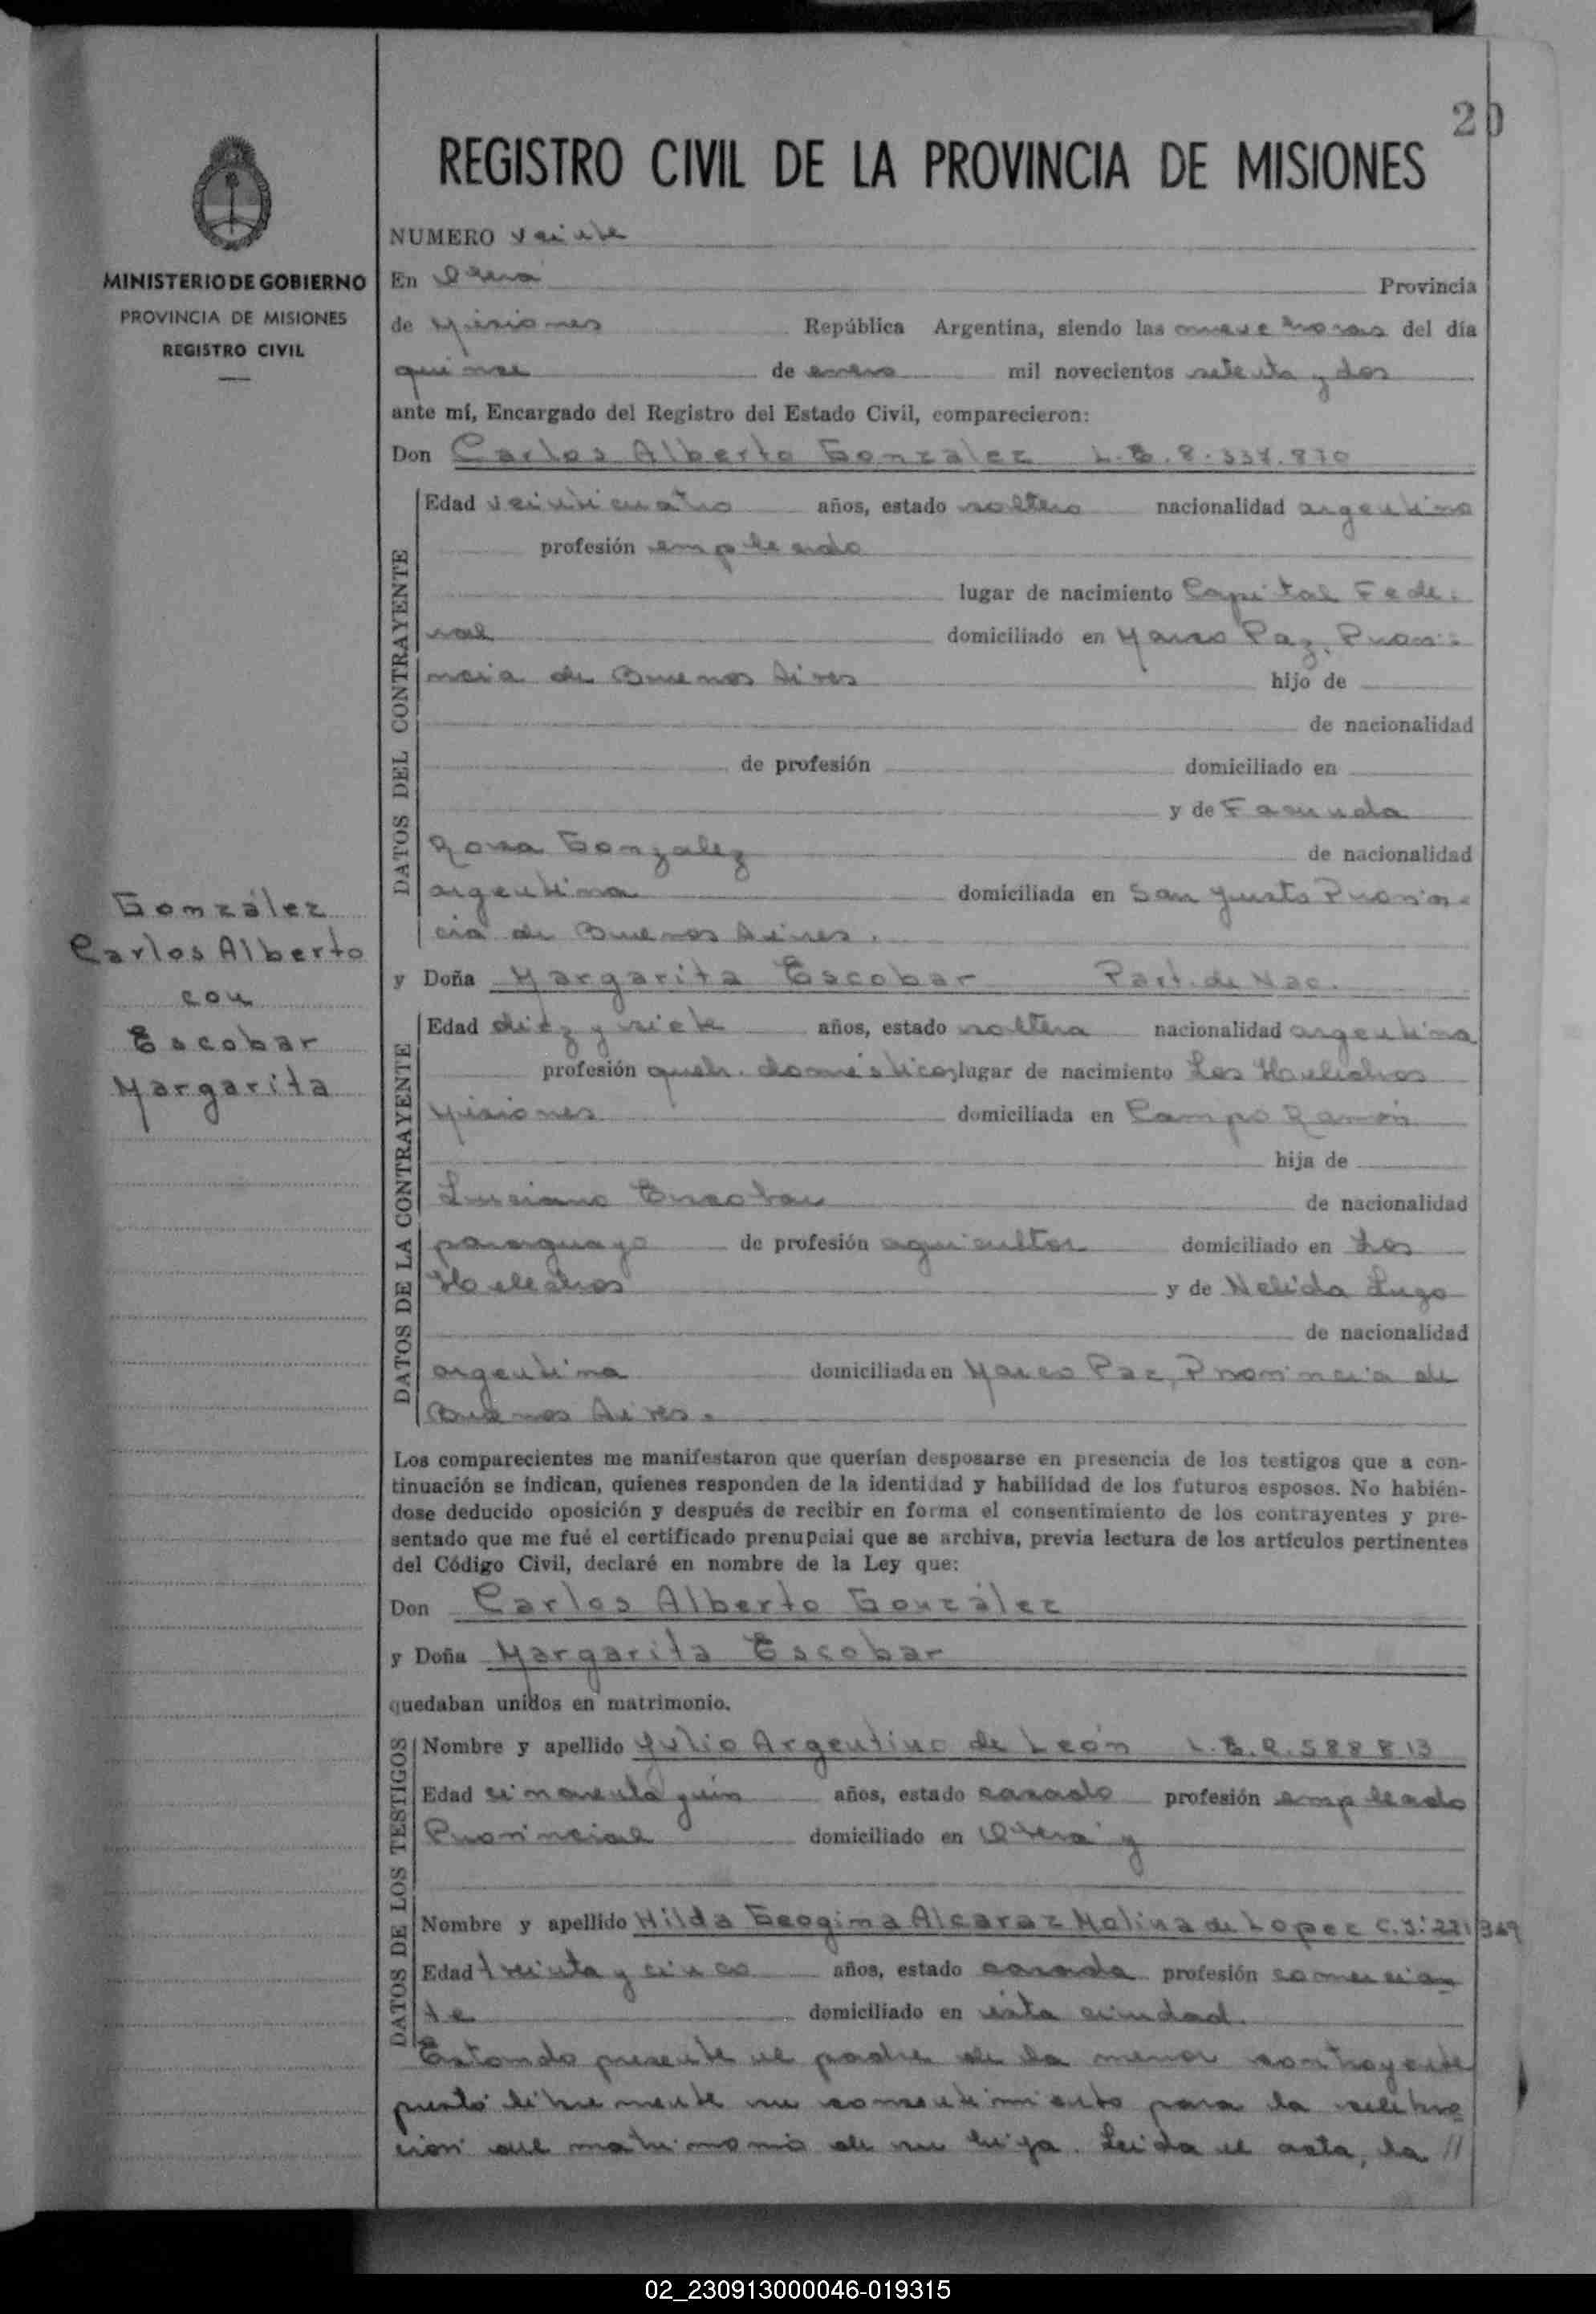 20
REGISTRO CIVIL DE LA PROVINCIA DE MISIONES
MINISTERIO DE GOBIERNO
PROVINCIA DE MISIONES
REGISTRO CIVIL
González
Carlos Alberto
con
Escobar
Margarita
NUMERO veinte
En Oberá Provincia
de Misiones República Argentina, siendo las nueve horas del día
quince de enero mil novecientos setenta y dos
ante mí, Encargado del Registro del Estado Civil, comparecieron:
Don Carlos Alberto González L.E. 8.337.870
DATOS DEL CONTRAYENTE
Edad veinticuatro años, estado soltero nacionalidad argentino
profesión empleado
lugar de nacimiento Capital Fede-
ral domiciliado en Marcos Paz, Provi-
ncia de Buenos Aires hijo de
de nacionalidad
de profesión domiciliado en
y de Facunda
Rosa Gonzalez de nacionalidad
argentina domiciliada en San Justo Provin-
cia de Buenos Aires.
y Doña Margarita Escobar Part. de Nac.
DATOS DE LA CONTRAYENTE
Edad diez y siete años, estado soltera nacionalidad argentina
profesión queh. domésticos lugar de nacimiento Los Helechos
Misiones domiciliada en Campo Ramón
hija de
Luciano Escobar de nacionalidad
paraguayo de profesión agricultor domiciliado en Los
Helechos y de Nelida Lugo
de nacionalidad
argentina domiciliada en Marcos Paz, Provincia de
Buenos Aires.
Los comparecientes me manifestaron que querían desposarse en presencia de los testigos que a con-
tinuación se indican, quienes responden de la identidad y habilidad de los futuros esposos. No habién-
dose deducido oposición y después de recibir en forma el consentimiento de los contrayentes y pre-
sentado que me fué el certificado prenupcial que se archiva, previa lectura de los artículos pertinentes
del Código Civil, declaré en nombre de la Ley que:
Don Carlos Alberto González
y Doña Margarita Escobar
quedaban unidos en matrimonio.
DATOS DE LOS TESTIGOS
Nombre y apellido Julio Argentino de León L.E. 2.588813
Edad cincuenta años, estado casado profesión empleado
Provincial domiciliado en Oberá y
Nombre y apellido Hilda Geogina Alcaraz Molina de Lopez C.I: 221369
Edad treinta y cinco años, estado casada profesión comercian
te domiciliado en esta ciudad.
Estando presente el padre de la menor contrayente
prestó libremente su consentimiento para la celebra
cion del matrimonio de su hija. Leida el acta, la //
02_230913000046-019315